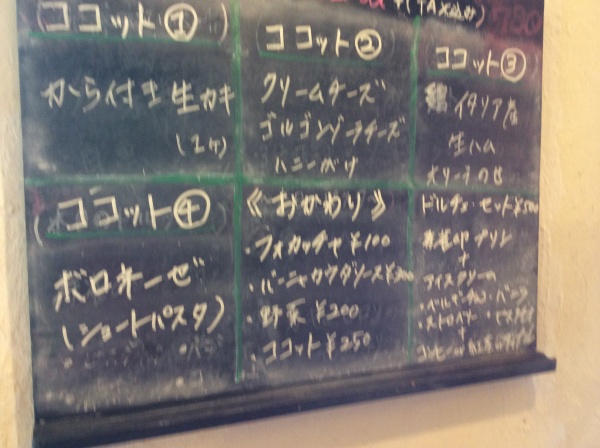 (TAX込み) 780
ココット①
から付き生カキ
(1ヶ)
ココット②
クリームチーズ
ゴルゴンゾーラチーズ
ハニーがけ
ココット③
イタリア産
生ハム
オリーブのせ
ココット④
ボロネーゼ
(ショートパスタ)
《おかわり》
・フォカッチャ ¥100
・バーニャカウダソース
・野菜 ¥200
・ココット ¥250
ドルチェ・セット
プリン
+
アイスクリーム
・バニラ
・ストロベリー
+